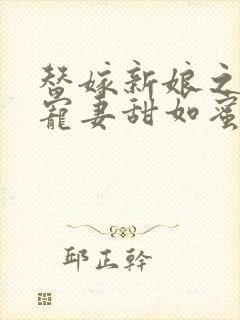 替嫁新娘之
寵妻甜如蜜
邱正幹